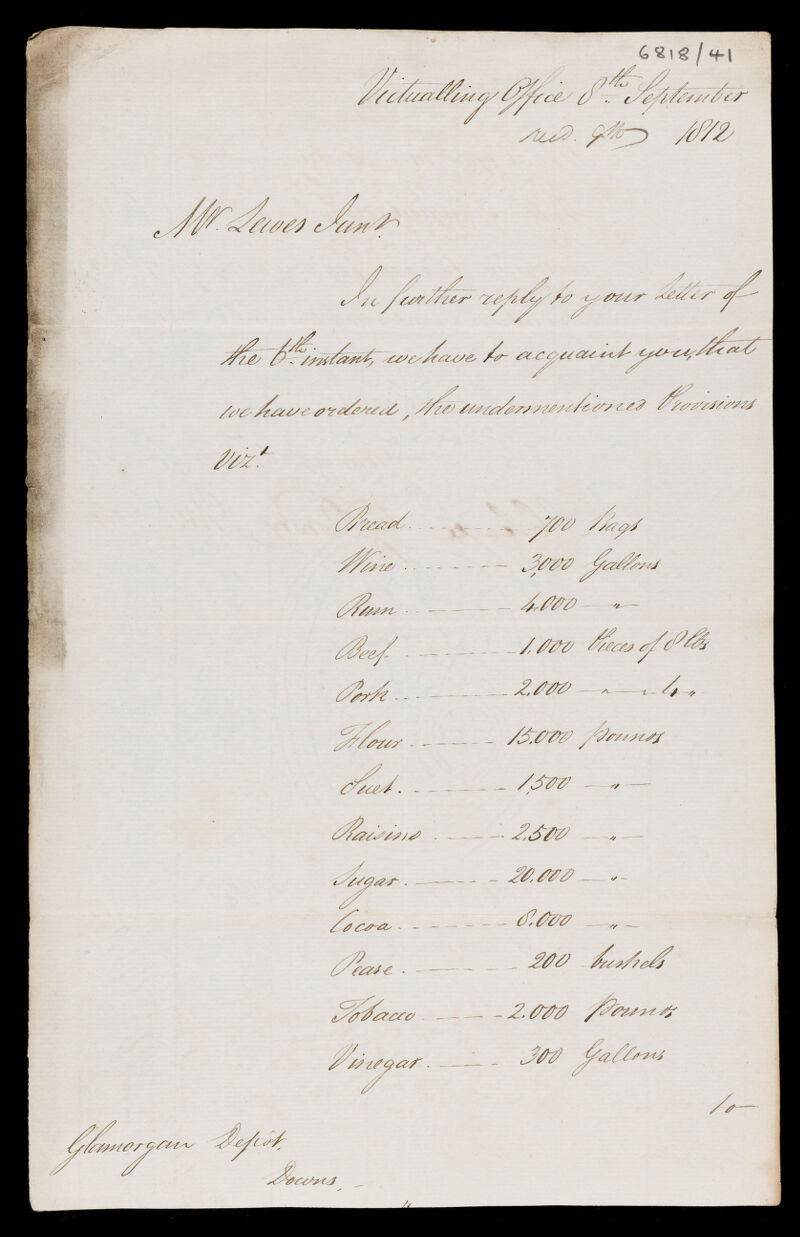 6818/41
Victualling Office 8th September
recd. 9th 1812
Mr. Lewes Junr.
In further reply to your Letter of
the 6th instant, we have to acquaint you, that
we have ordered, the undermentioned Provisions
Vizt.
Bread 700 Bags
Wine 3,000 Gallons
Rum 4.000 "
Beef 1.000 Pieces of 8 lbs
Pork 2.000 " " 4 "
Flour 15.000 pounds
Suet. 1,500 "
Raisins 2.500 "
Sugar. 20.000 "
Cocoa 8.000 "
Pease. 200 bushels
Tobacco 2.000 pounds
Vinegar. 300 Gallons
to
Glamorgan Depôt.
Downs.